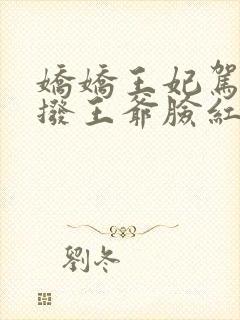 嬌嬌王妃駕
撥王爺臉紅
劉冬